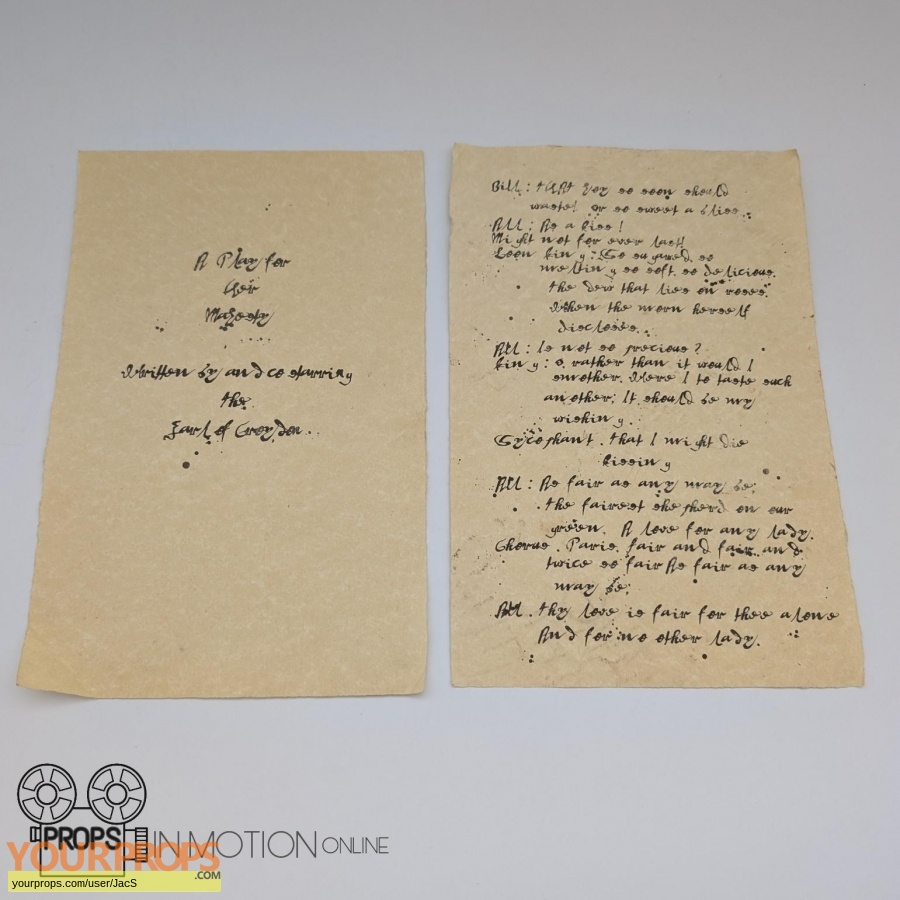 A Play for
Her
Majesty
Written by and co starring
the
Earl of Croydon.
Bill : that you so soon should
waste! or so sweet a bliss.
All : As a kiss!
Might not for ever last!
Loon king : So sugared so
melting so soft so delicious.
the dew that lies on roses.
When the morn herself
discloses.
All : Is not so precious?
king : o, rather than it would I
smother. Were I to taste such
another; It should be my
wishing.
Sycophant. that I might die
kissing
All : As fair as any may be;
the fairest shepherd on our
green. A love for any lady.
Chorus. Paris. fair and fair and
twice so fair As fair as any
may be;
All. thy love is fair for thee alone
And for no other lady.
PROPS IN MOTION ONLINE
YOURPROPS
.COM
yourprops.com/user/JacS